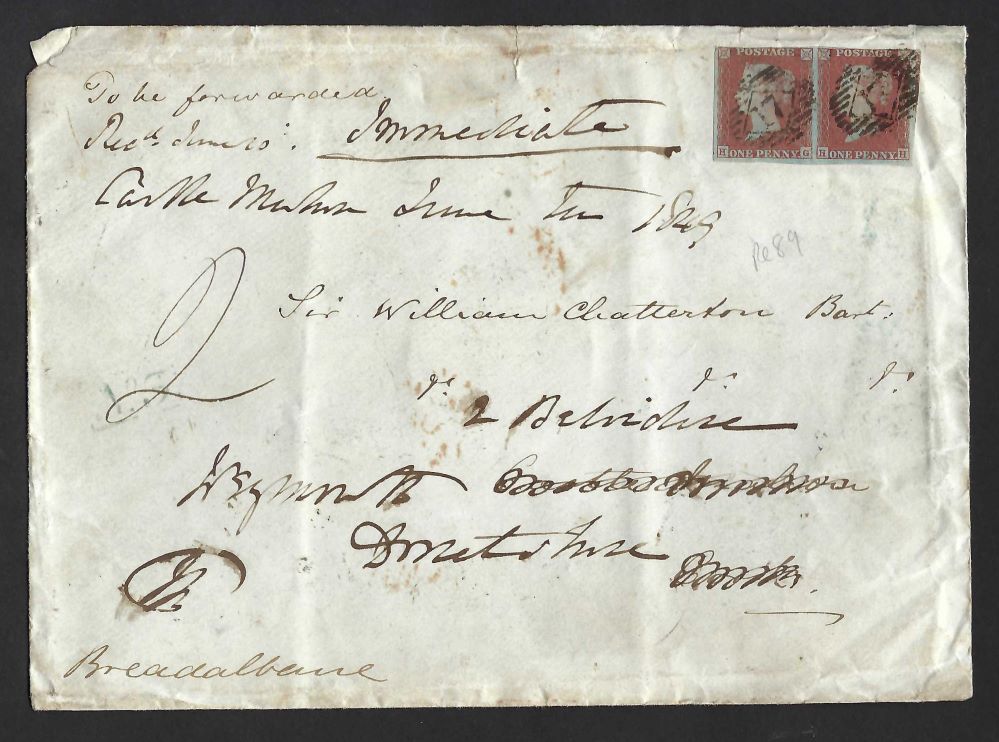 To be forwarded
Recd. June 10. Immediate
Castle June 1849
Re89
2 Sir William Chatterton Bart.
2 Belvidere
Weymouth
Dorsetshire
Cork.
Breadalbane
POSTAGE POSTAGE
H ONE PENNY G H ONE PENNY H